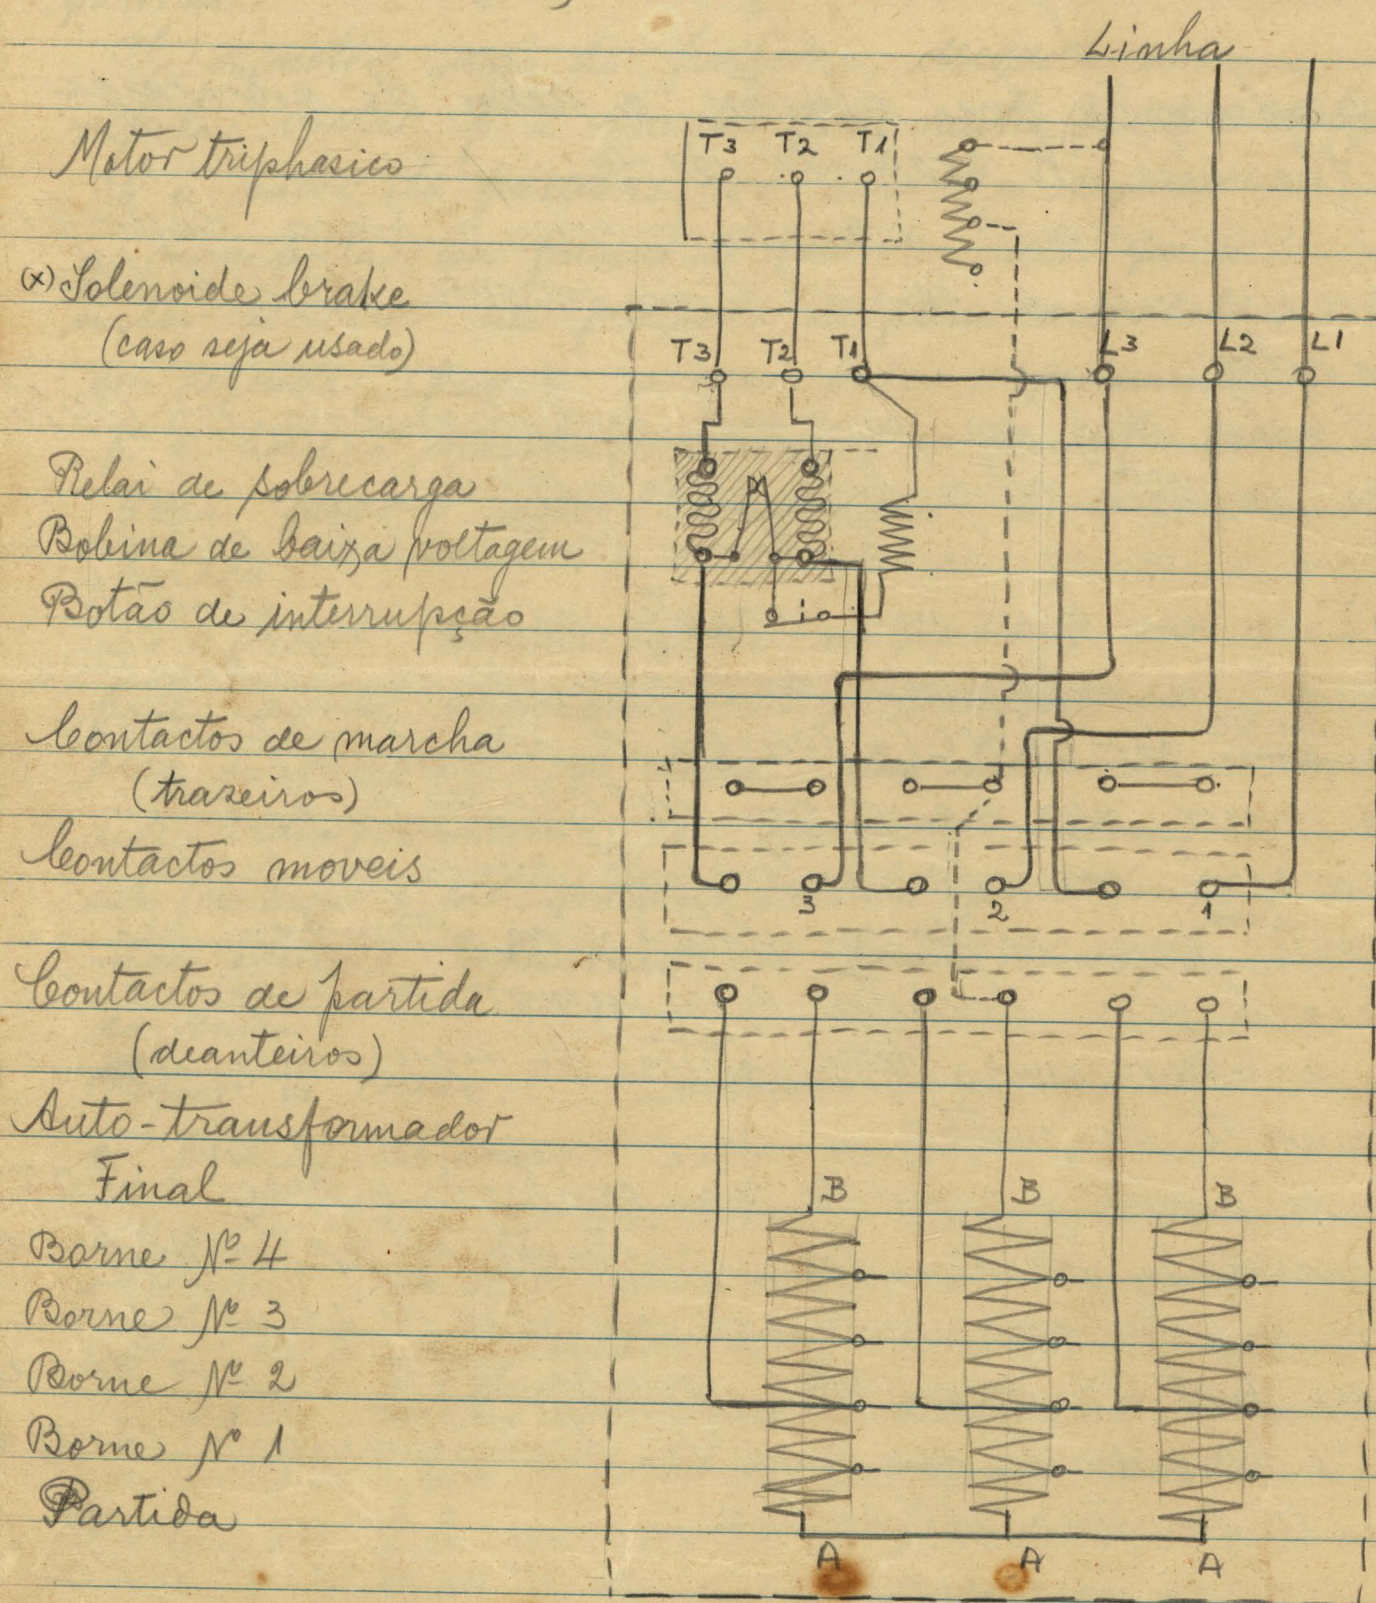 Linha
T3 T2 T1
Motor triphasico
(x) Solenoide brake
(caso seja usado)
T3 T2 T1 L3 L2 L1
Relai de sobrecarga
Bobina de baixa voltagem
Botão de interrupção
Contactos de marcha
(trazeiros)
Contactos moveis
3 2 1
Contactos de partida
(deanteiros)
Auto-transformador
Final
B B B
Borne Nº 4
Borne Nº 3
Borne Nº 2
Borne Nº 1
Partida
A A A